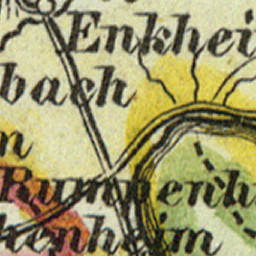 Enkhei
bach
n
Rumpenh
kenheim